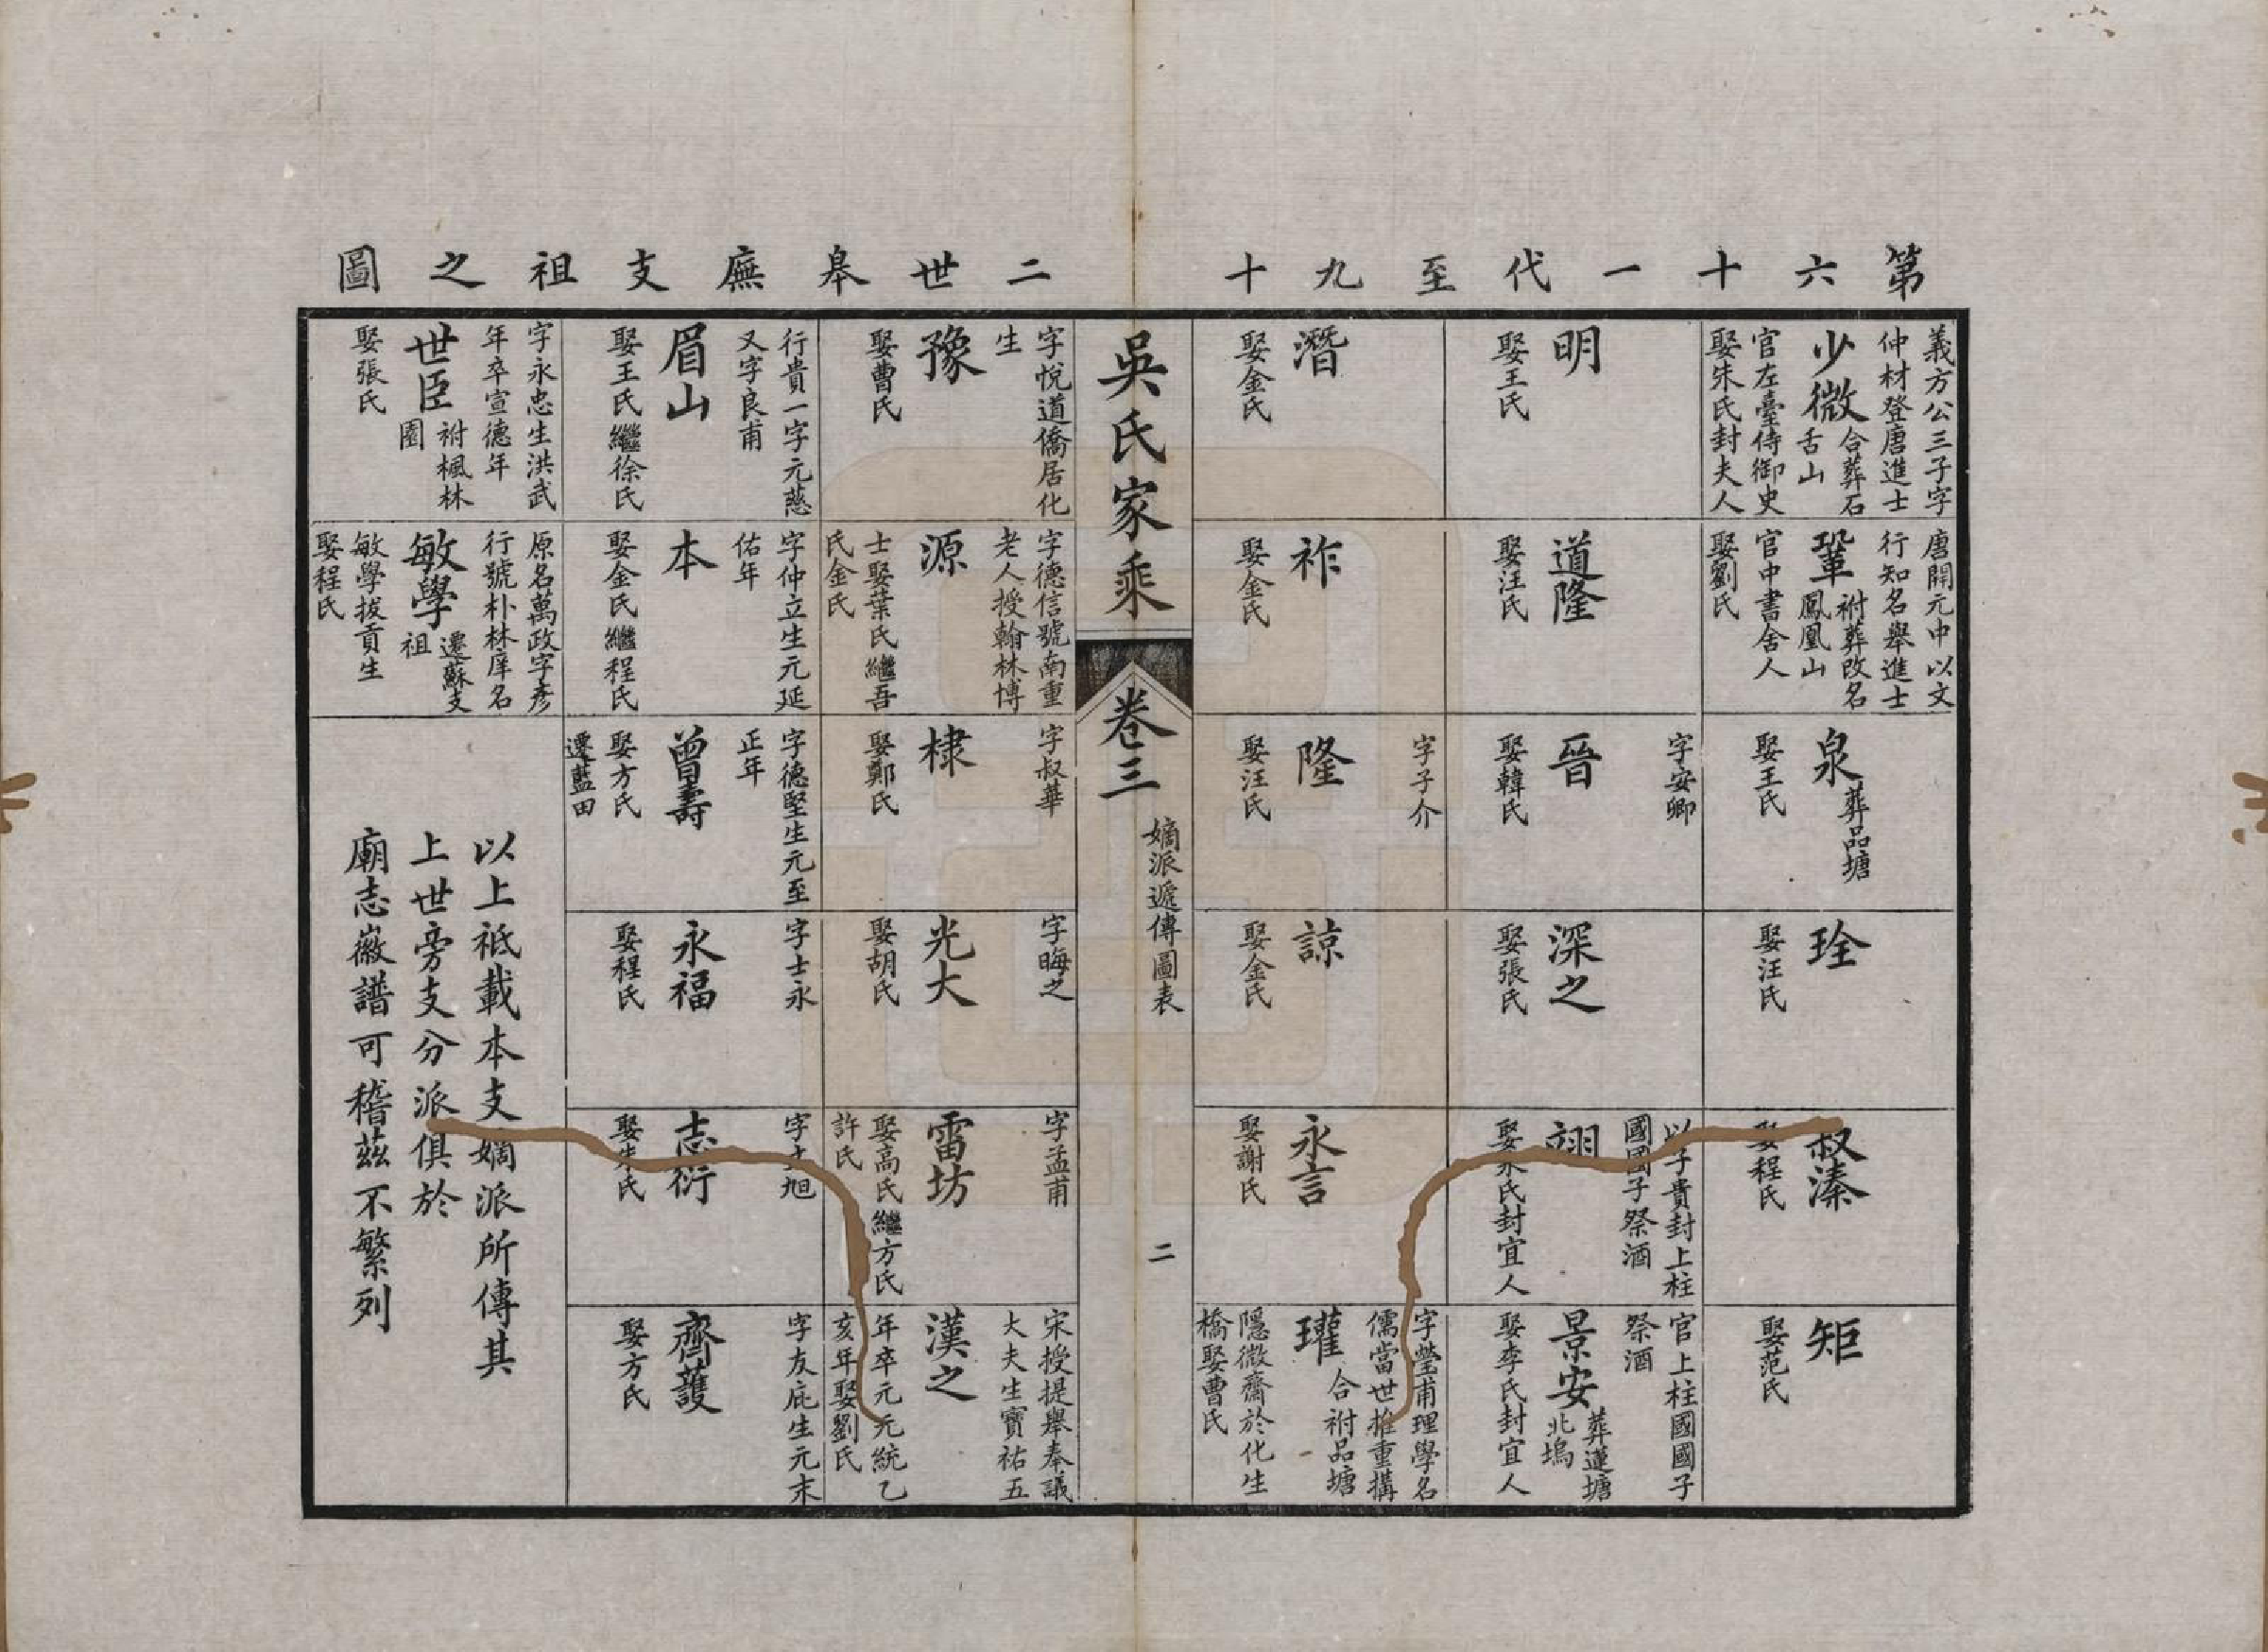 第六十一代至九十二世皋廡支祖之圖
義方公三子字
仲材登唐進士
少微
合葬石
舌山
官左臺侍御史
娶朱氏封夫人
唐開元中以文
行知名舉進士
鞏
祔葬改名
鳳凰山
官中書舍人
娶劉氏
泉
葬品塘
娶王氏
琻
娶汪氏
叔溱
娶程氏
矩
娶范氏
明
娶王氏
道隆
娶汪氏
字安卿
晉
娶韓氏
深之
娶張氏
以子貴封上柱
國國子祭酒
翊
氏封宜人
官上柱國國子
祭酒
景安
葬蓮塘
北塢
娶李氏封宜人
潛
娶金氏
祚
娶金氏
字子介
隆
娶汪氏
諒
娶金氏
永言
娶謝氏
字瑩甫理學名
儒當世推重搆
瓘
合祔品塘
隱微齋於化生
橋娶曹氏
吳氏家乘
卷三
嫡派遞傳圖表
二
字悅道僑居化
生
豫
娶曹氏
字德信號南重
老人授翰林博
源
士娶葉氏繼吾
氏金氏
字叔華
棣
娶鄭氏
字晦之
光大
娶胡氏
字孟甫
雷坊
娶高氏繼方氏
許氏
宋授提舉奉議
大夫生寶祐五
漢之
年卒元元統乙
亥年娶劉氏
行貴一字元慈
又字良甫
眉山
娶王氏繼徐氏
字仲立生元延
佑年
本
娶金氏繼程氏
字德堅生元至
正年
曾壽
娶方氏
遷藍田
字士永
永福
娶程氏
字士旭
志衍
娶朱氏
字友庇生元末
齊護
娶方氏
字永忠生洪武
年卒宣德年
世臣
祔楓林
園
娶張氏
原名萬政字彥
行號朴林庠名
敏學
遷蘇支
祖
敏學拔貢生
娶程氏
以上祗載本支嫡派所傳其
上世旁支分派俱於
廟志徽譜可稽茲不繁列